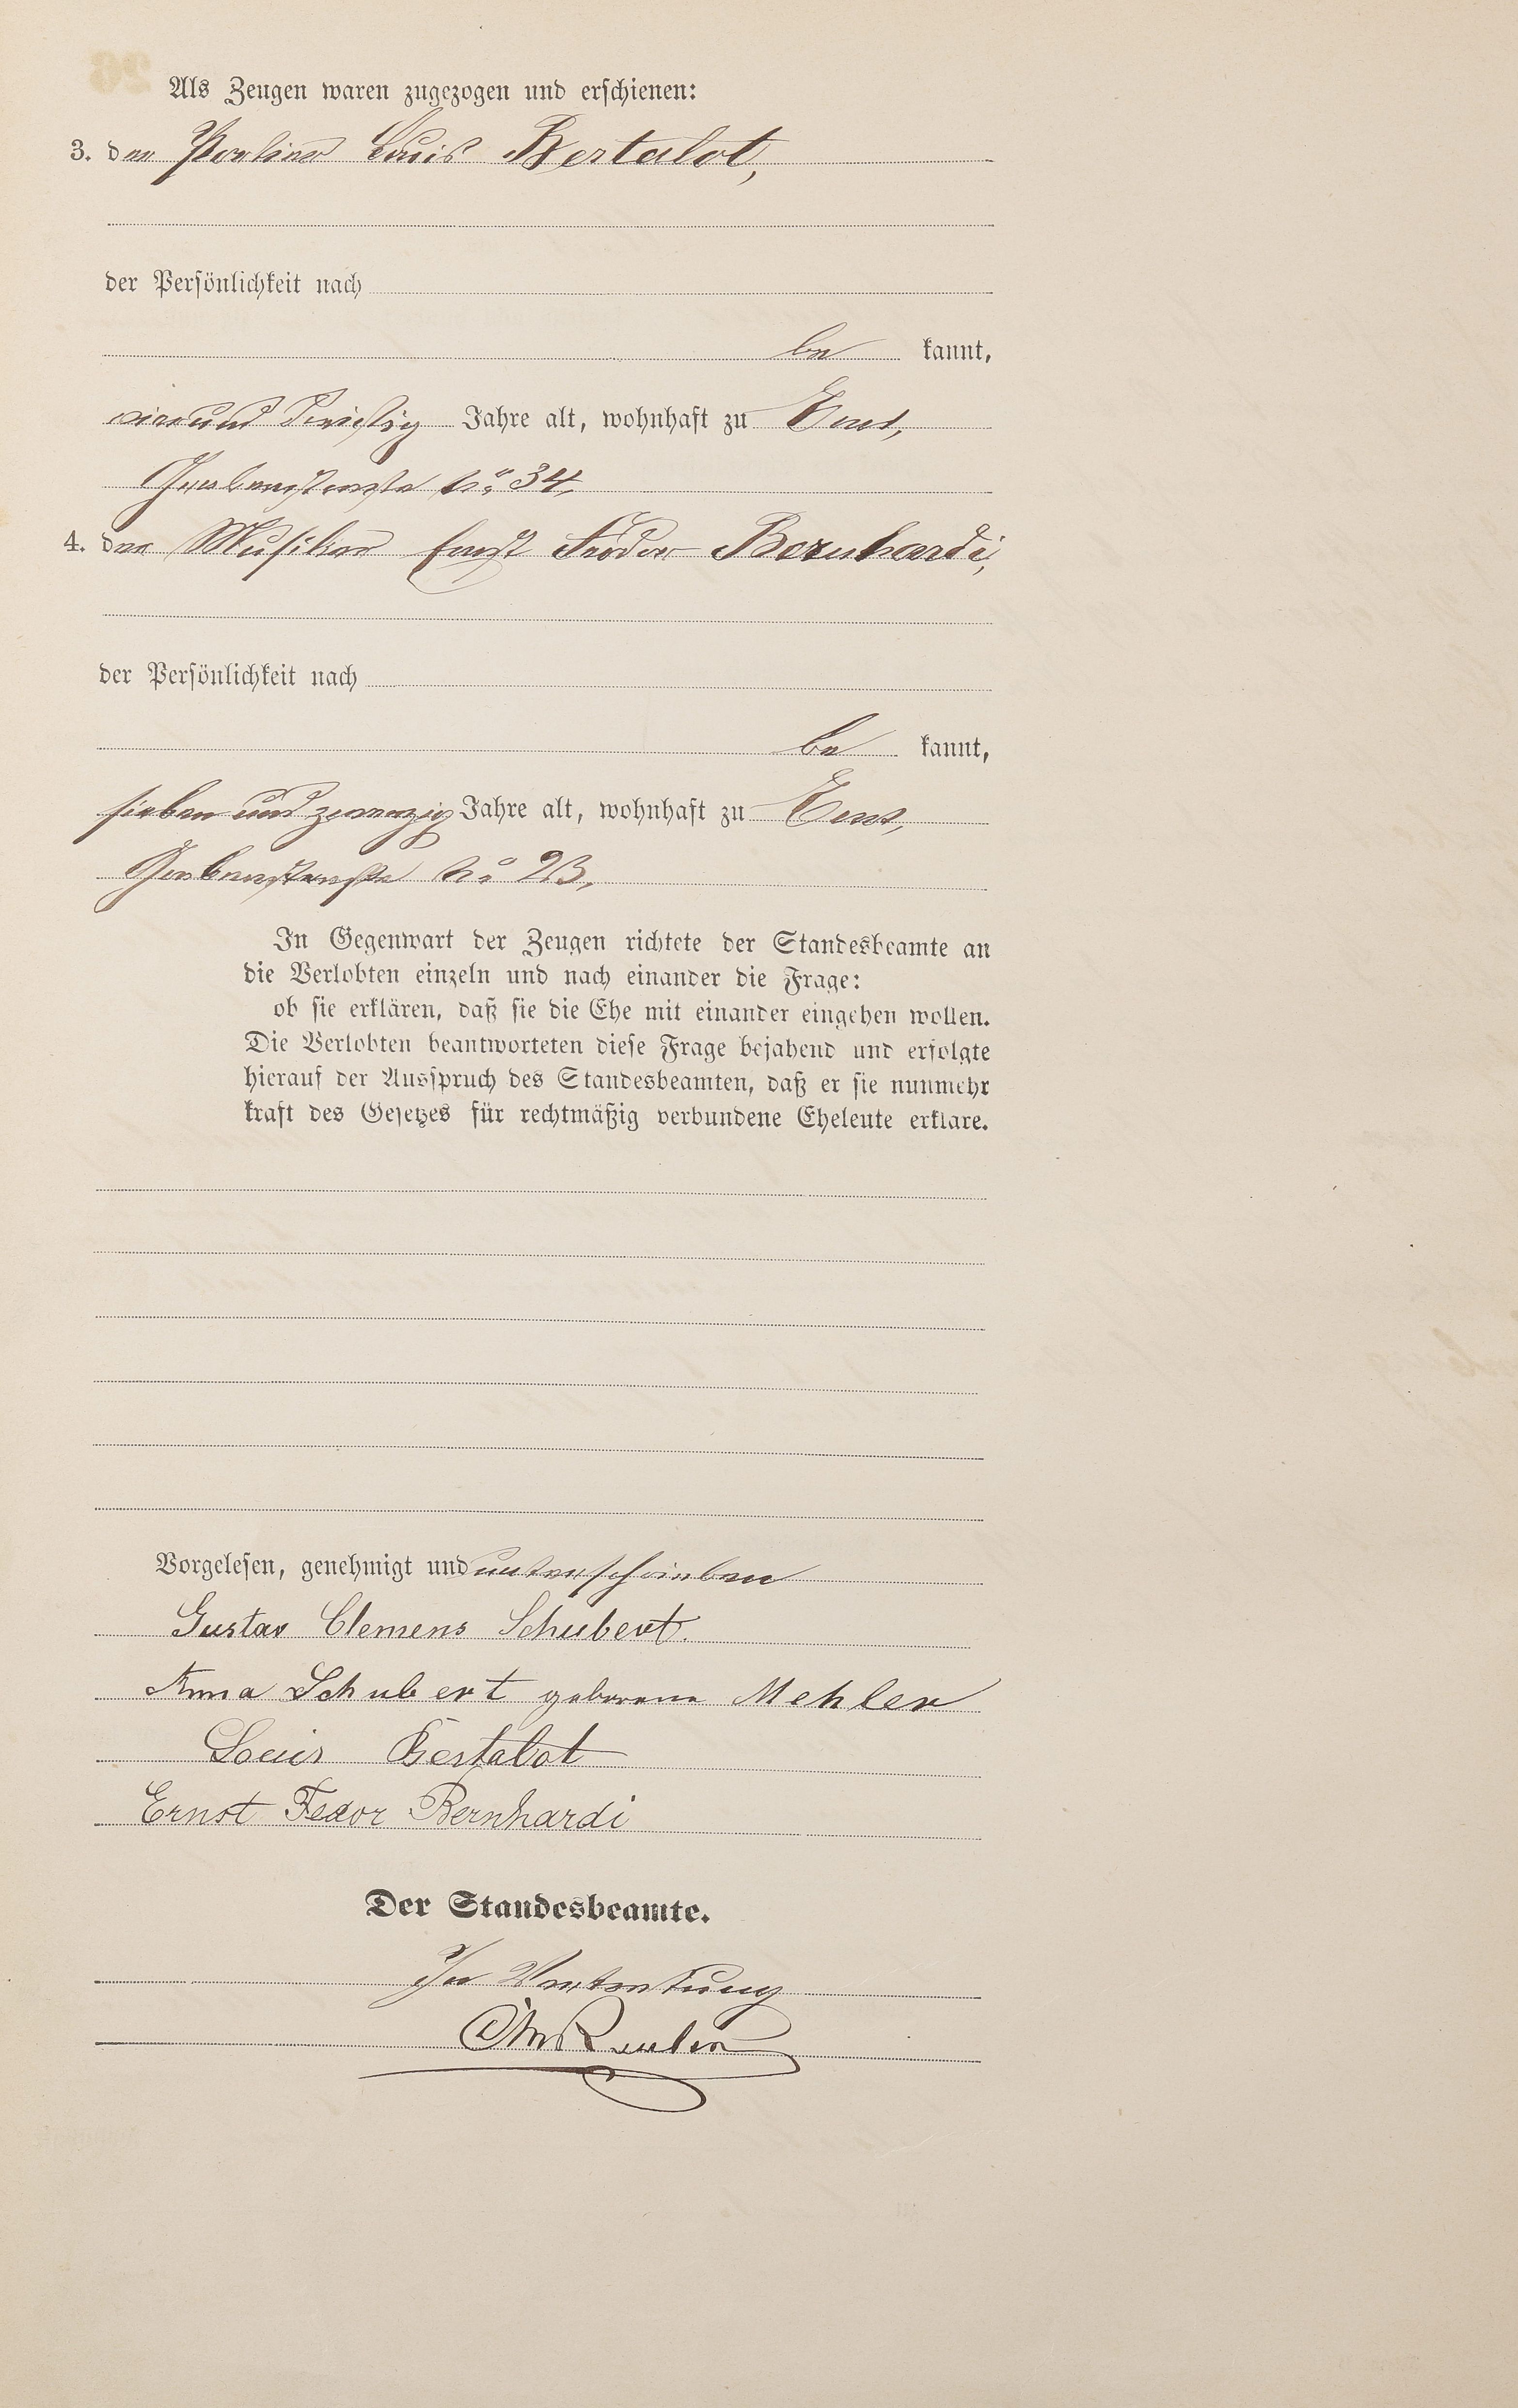 Als Zeugen waren zugezogen und erschienen:
3. der Portier Louis Bertalot,
der Persönlichkeit nach
be kannt,
vierund dreißig Jahre alt, wohnhaft zu Ems,
Grabenstraße No 34,
4. der Musiker Ernst Feodor Bernhardi,
der Persönlichkeit nach
be kannt,
sieben und zwanzig Jahre alt, wohnhaft zu Ems,
Grabenstraße No 23,
In Gegenwart der Zeugen richtete der Standesbeamte an
die Verlobten einzeln und nach einander die Frage:
ob sie erklären, daß sie die Ehe mit einander eingehen wollen.
Die Verlobten beantworteten diese Frage bejahend und erfolgte
hierauf der Ausspruch des Standesbeamten, daß er sie nunmehr
kraft des Gesetzes für rechtmäßig verbundene Eheleute erkläre.
Vorgelesen, genehmigt und unterschrieben
Gustav Clemens Schubert.
Anna Schubert geborene Mehler
Louis Bertalot
Ernst Fedor Bernhardi
Der Standesbeamte.
In Vertretung